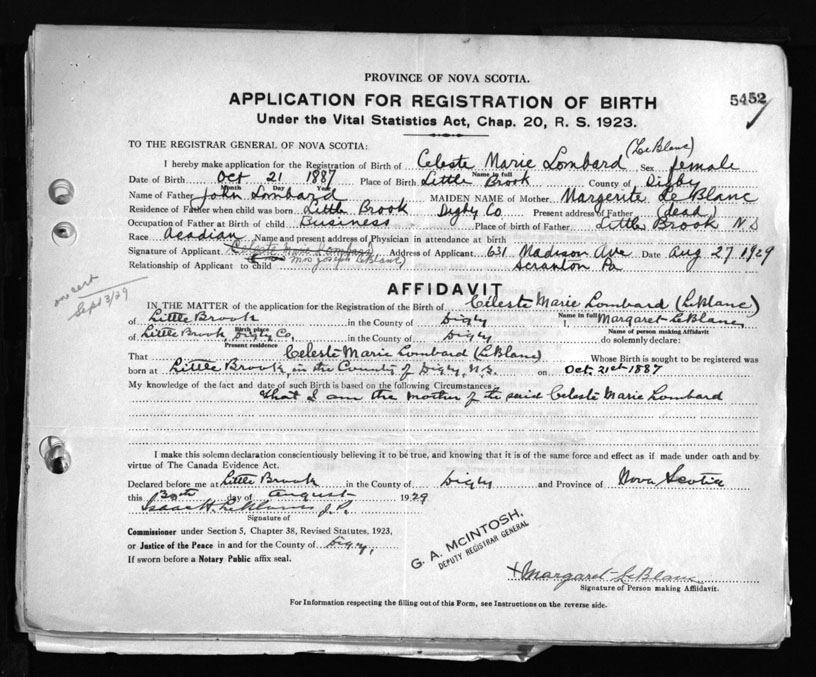 PROVINCE OF NOVA SCOTIA.
5452
APPLICATION FOR REGISTRATION OF BIRTH
Under the Vital Statistics Act, Chap. 20, R. S. 1923.
TO THE REGISTRAR GENERAL OF NOVA SCOTIA:
(LeBlanc)
I hereby make application for the Registration of Birth of Celeste Marie Lombard Sex female
Name in full
Date of Birth Oct 21 1887 Place of Birth Little Brook County of Digby
Month Day Year
Name of Father John Lombard MAIDEN NAME of Mother Margerite Le Blanc
Residence of Father when child was born Little Brook Digby Co Present address of Father (dead)
Occupation of Father at Birth of child Business Place of birth of Father Little Brook N.S
Race Acadian Name and present address of Physician in attendance at birth
Signature of Applicant Celeste Marie Lombard Address of Applicant 631 Madison Ave Date Aug 27 1929
Relationship of Applicant to child Mrs Joseph LeBlanc) Scranton Pa
on cert
Sept 3/29
AFFIDAVIT
IN THE MATTER of the application for the Registration of the Birth of Celeste Marie Lombard (LeBlanc)
Name in full
of Little Brook in the County of Digby I, Margaret LeBlanc,
Birth place Name of person making Affidavit
of Little Brook, Digby Co, in the County of Digby do solemnly declare:
Present residence
That Celeste Marie Lombard (LeBlanc) Whose Birth is sought to be registered was
born at Little Brook, in the County of Digby, N.S. on Oct. 21st 1887
My knowledge of the fact and date of such Birth is based on the following Circumstances:
that I am the mother of the said Celeste Marie Lombard
I make this solemn declaration conscientiously believing it to be true, and knowing that it is of the same force and effect as if made under oath and by
virtue of The Canada Evidence Act.
Declared before me at Little Brook in the County of Digby and Province of Nova Scotia
this 30th day of August 1929
Isaac H. LeBlanc J.P.
Signature of
Commissioner under Section 5, Chapter 38, Revised Statutes, 1923,
or Justice of the Peace in and for the County of Digby,
If sworn before a Notary Public affix seal.
G. A. McINTOSH,
DEPUTY REGISTRAR GENERAL
+ Margaret LeBlanc
Signature of Person making Affidavit.
For Information respecting the filling out of this Form, see Instructions on the reverse side.